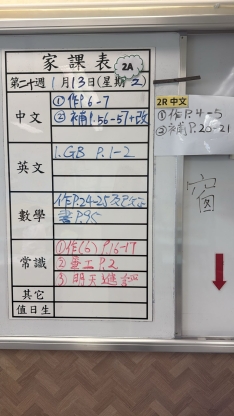 家課表
2A
第二十週 1月13日(星期2)
中文
①作P.6-7
②補P.56-57+改
英文
1.GB P.1-2
數學
作P.24-25
書P.95
常識
①作(6) P.16-17
②筆工P.2
③明天進
其它
值日生
2R 中文
①作P.4-5
②補P.20-21
窗